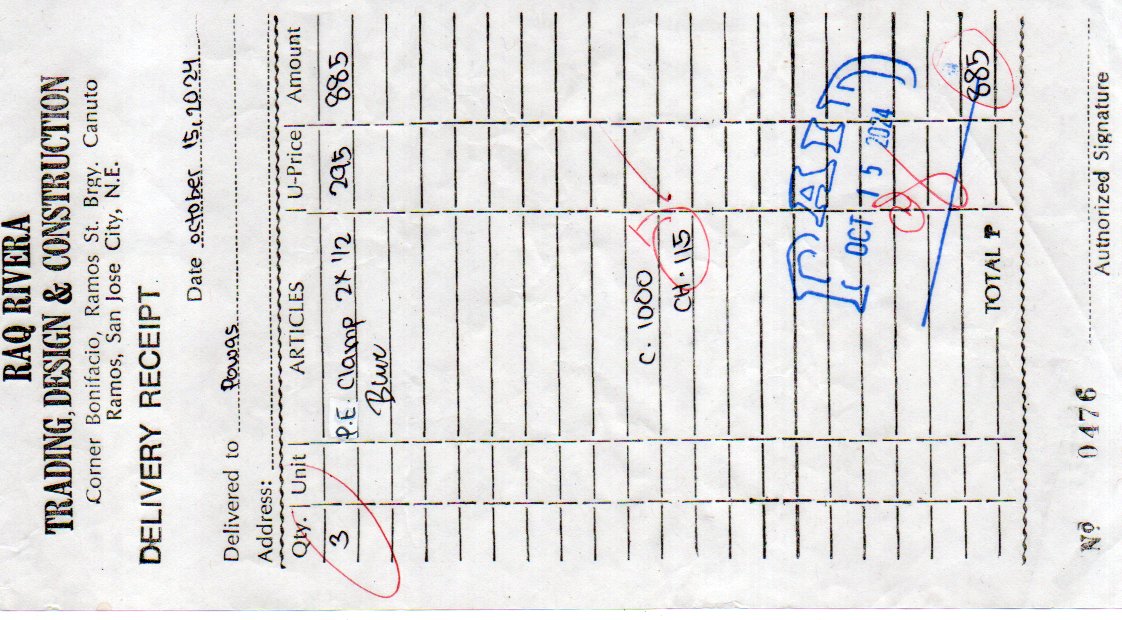 RAQ RIVERA
TRADING, DESIGN & CONSTRUCTION
Corner Bonifacio, Ramos St. Brgy. Canuto
Ramos, San Jose City, N.E.
DELIVERY RECEIPT
Date October 15, 2024
Delivered to Powas
Address:
Qty. Unit ARTICLES U-Price Amount
3 P.E. Clamp 2x 1/2 295 885
Blue
C. 1000
CH. 115
PAID
OCT 15 2024
TOTAL ₱ 885
Nº 0476 Authorized Signature